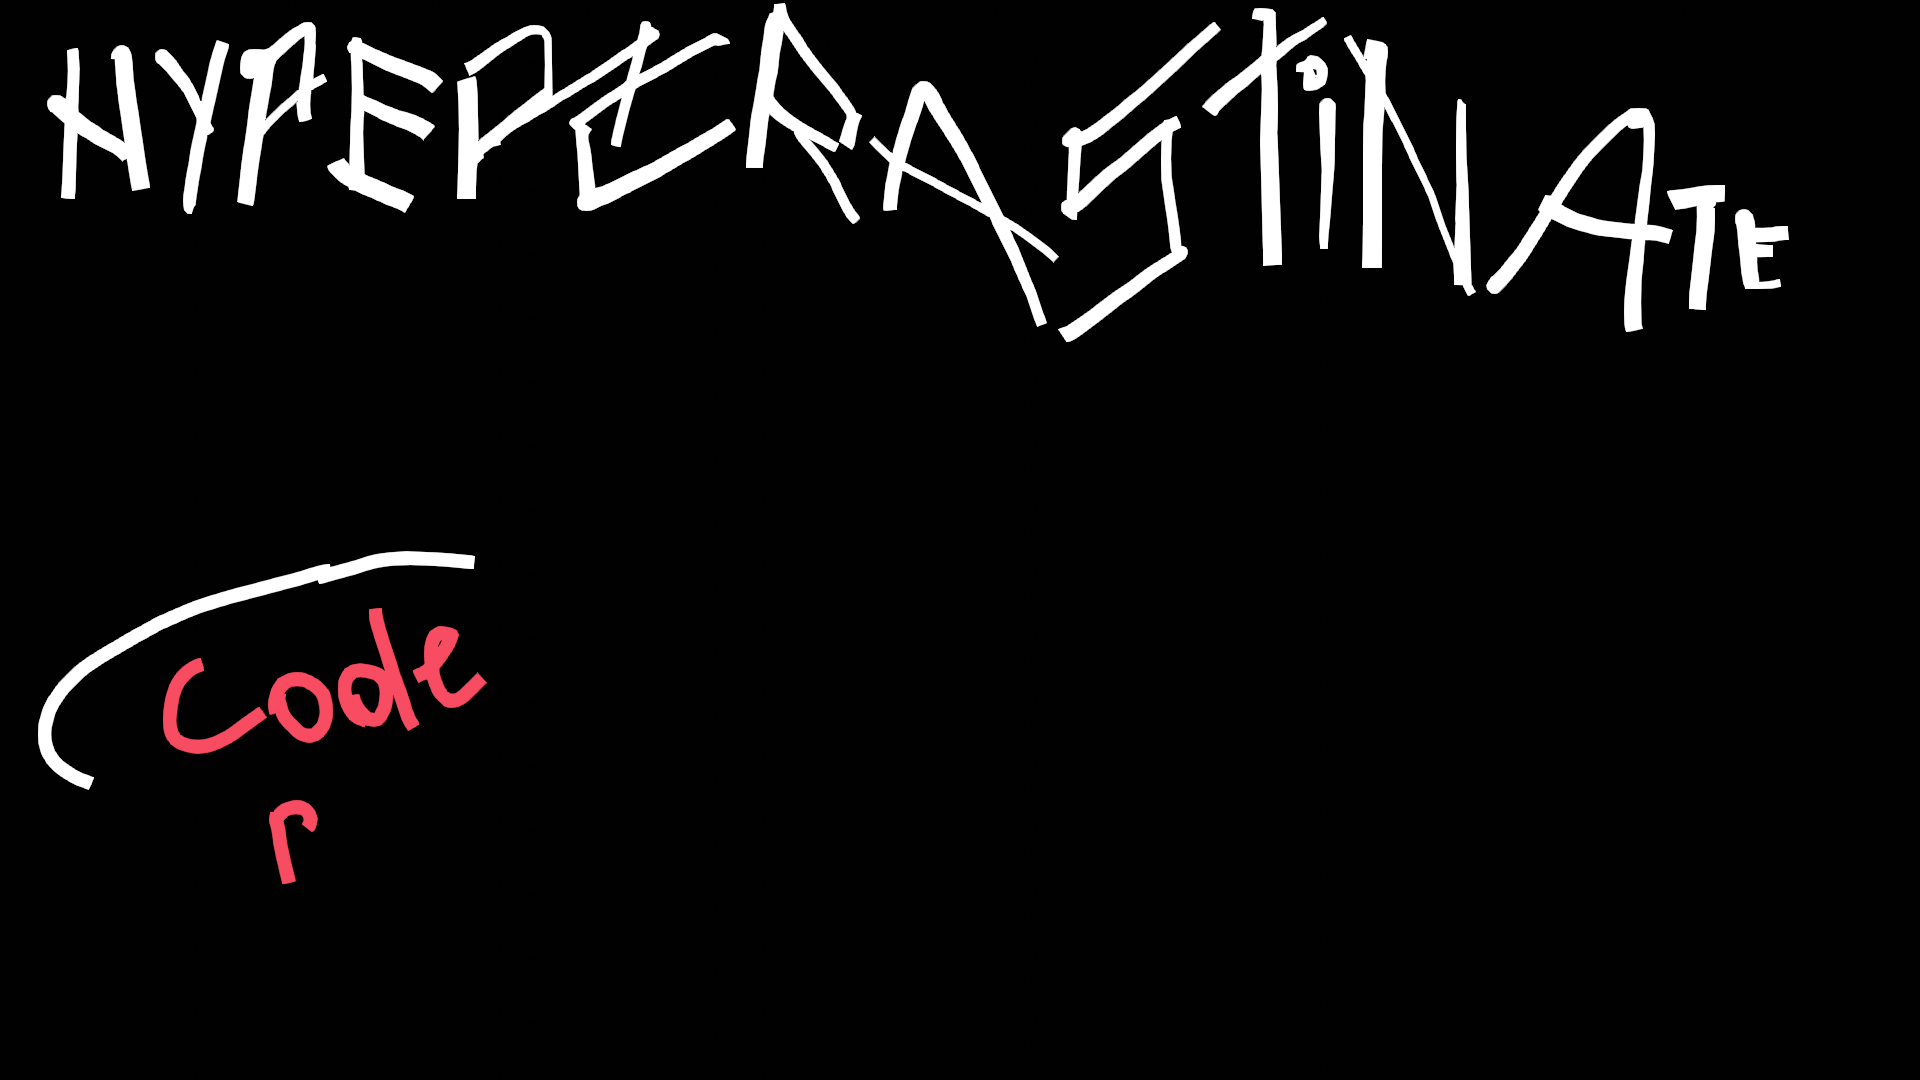 HYPERCRASTiNATE
Code
r